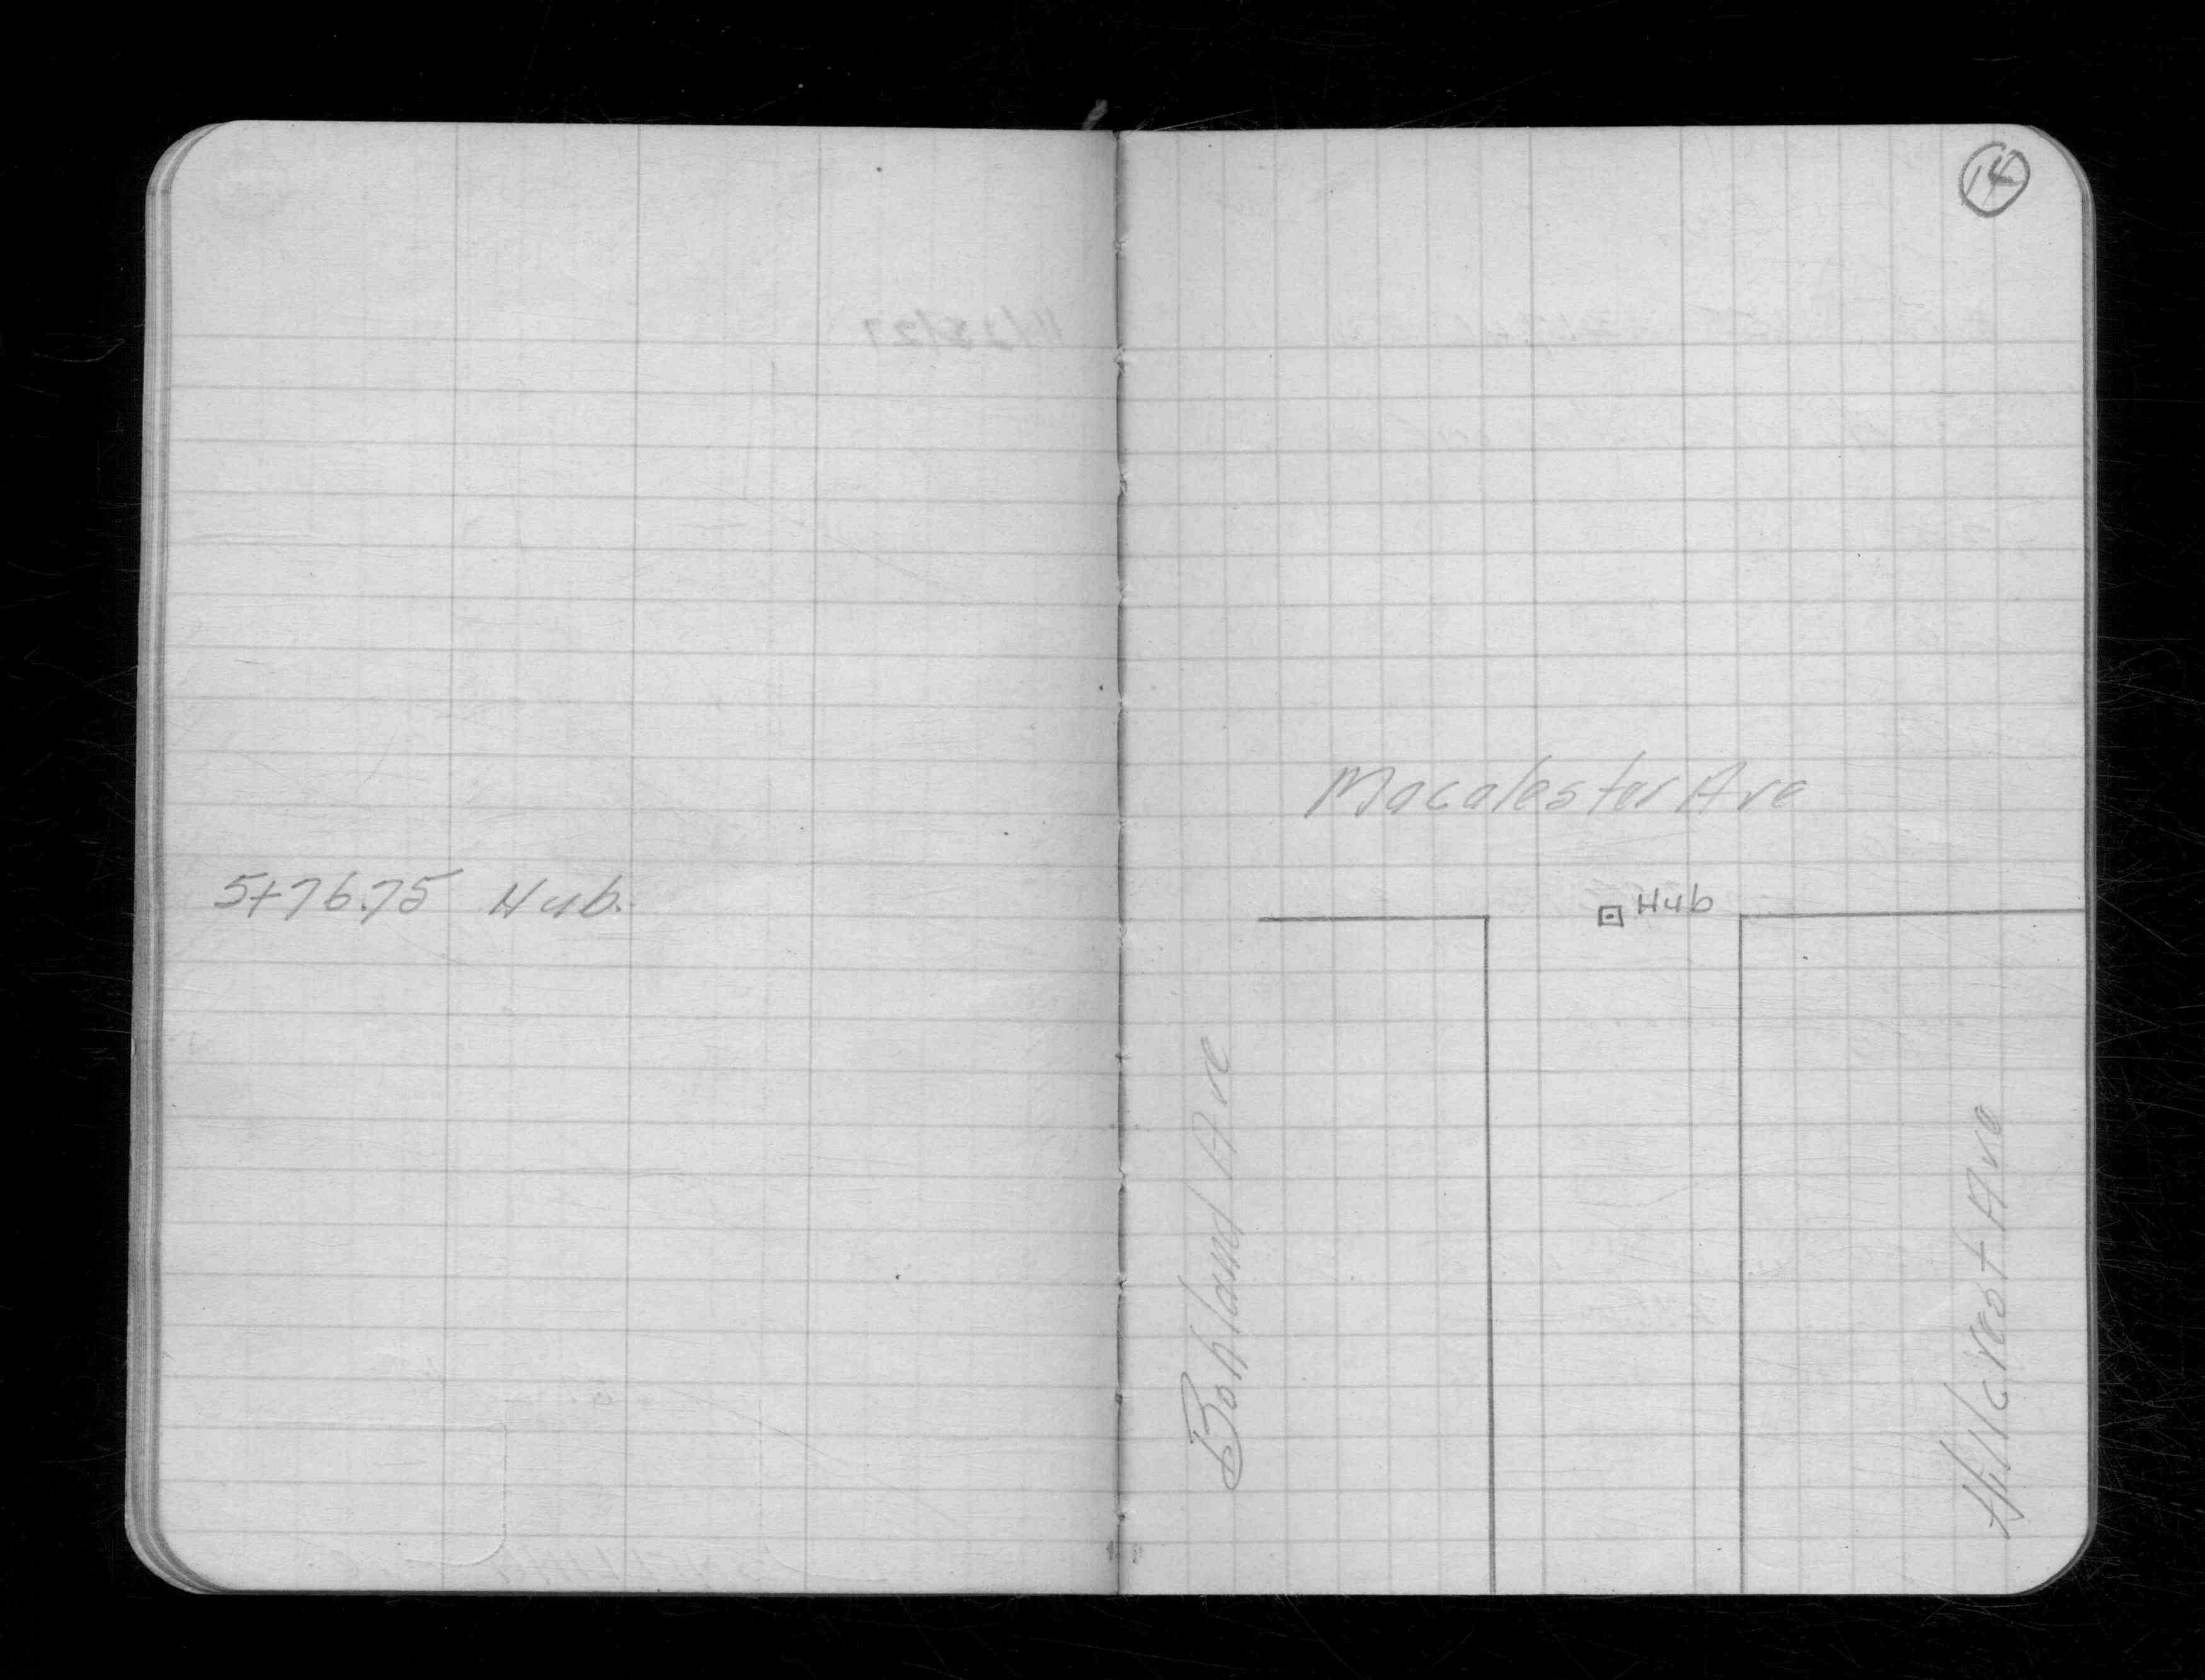 14
Macalester Ave
5+76.75 Hub.
Hub
Bohland Ave
Hillcrest Ave